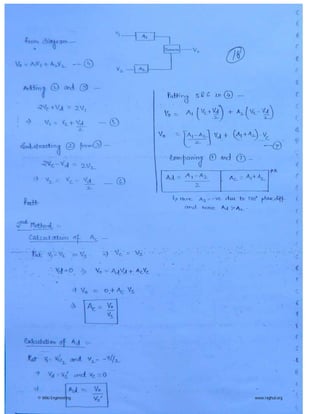 from diagram —
V₁
A₁
V₀
V₂
A₂
18
V₀ = A₁V₁ + A₂V₂ — ④
Adding ② and ③ -
2V_c + V_d = 2V₁
⇒ V₁ = V_c + V_d/2 — ⑤
Substracting ② from ③ -
2V_c - V_d = 2V₂
⇒ V₂ = V_c - V_d/2 — ⑥
Putting 5 & 6 in ④ -
V₀ = A₁ (V_c + V_d/2) + A₂ (V_c - V_d/2)
V₀ = [A₁ - A₂/2] V_d + (A₁ + A₂) . V_c
— ⑦
Comparing ① and ⑦ -
A_d = A₁ - A₂/2
A_c = A₁ + A₂
Here A₂ = -ve due to 180° phase diff.
and hence A_d > A_c.
2nd Method :-
Calculation of A_c -
Put V₁ = V₂ = V_s ⇒ V_c = V_s
V_d = 0 ⇒ V₀ = A_d V_d + A_c V_c
⇒ V₀ = 0 + A_c V_s
⇒ A_c = V₀/V_s
Calculation of A_d -
Put V₁ = V_s'/2 and V₂ = -V_s'/2
⇒ V_d = V_s' and V_c = 0
⇒ A_d = V₀/V_s'
© Wiki Engineering
www.raghul.org